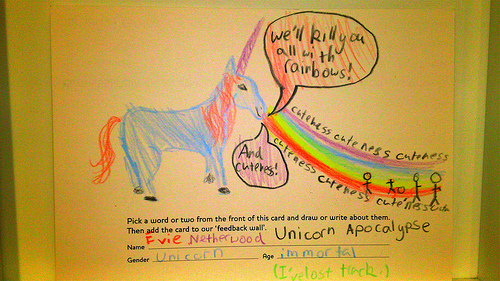 we'll kill you
all with
rainbows!
And
cuteness!
cuteness cuteness cuteness
cuteness cuteness cuteness
Pick a word or two from the front of this card and draw or write about them.
Then add the card to our 'feedback wall'.
Unicorn Apocalypse
Name Evie Netherwood
Gender Unicorn Age immortal
(I've lost track!)